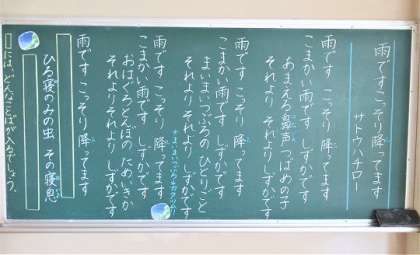 雨ですこっそり降ってます
サトウハチロー
雨です こっそり 降ってます
こまかい雨です しずかです
あまえる声 つばめの子
それより それより しずかです
雨です こっそり 降ってます
こまかい雨です しずかです
まいまいつぶろの ひとりごと
それより それより しずかです
雨です こっそり 降ってます
こまかい雨です しずかです
おはぐろとんぼの ためいきか
それより それより しずかです
雨です こっそり 降ってます
ひる寝のみの虫 その寝息
には、どんなことばが入るでしょう。